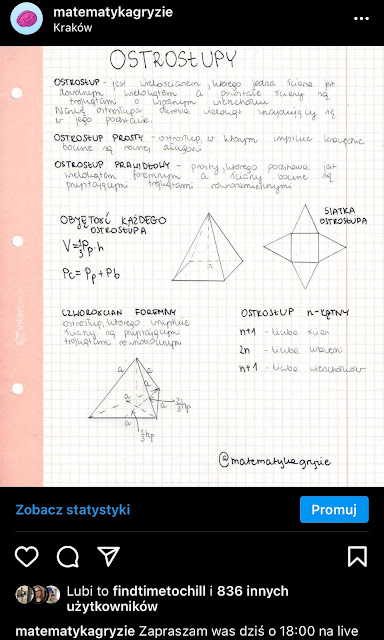 matematykagryzie
Kraków
OSTROSŁUPY
OSTROSŁUP - jest wielościanem, którego jedna ściana jest
dowolnym wielokątem a pozostałe ściany są
trójkątami o wspólnym wierzchołku.
Nazwę ostrosłupa określa wielokąt znajdujący się
w jego podstawie.
OSTROSŁUP PROSTY - ostrosłup, w którym wszystkie krawędzie
boczne są równej długości
OSTROSŁUP PRAWIDŁOWY - prosty, którego podstawą jest
wielokątem foremnym a ściany boczne są
przystającymi trójkątami równoramiennymi
OBJĘTOŚĆ KAŻDEGO
OSTROSŁUPA
V=⅓Pp·h
Pc = Pp + Pb
a
SIATKA
OSTROSŁUPA
CZWOROŚCIAN FOREMNY
ostrosłup, którego wszystkie
ściany są przystającymi
trójkątami równobocznymi
a
a
a
a
a
a
⅔hp
⅓hp
OSTROSŁUP n-KĄTNY
n+1 - liczba ścian
2n - liczba krawędzi
n+1 - liczba wierzchołków
@matematykagryzie
Zobacz statystyki
Promuj
Lubi to findtimetochill i 836 innych
użytkowników
matematykagryzie Zapraszam was dziś o 18:00 na live